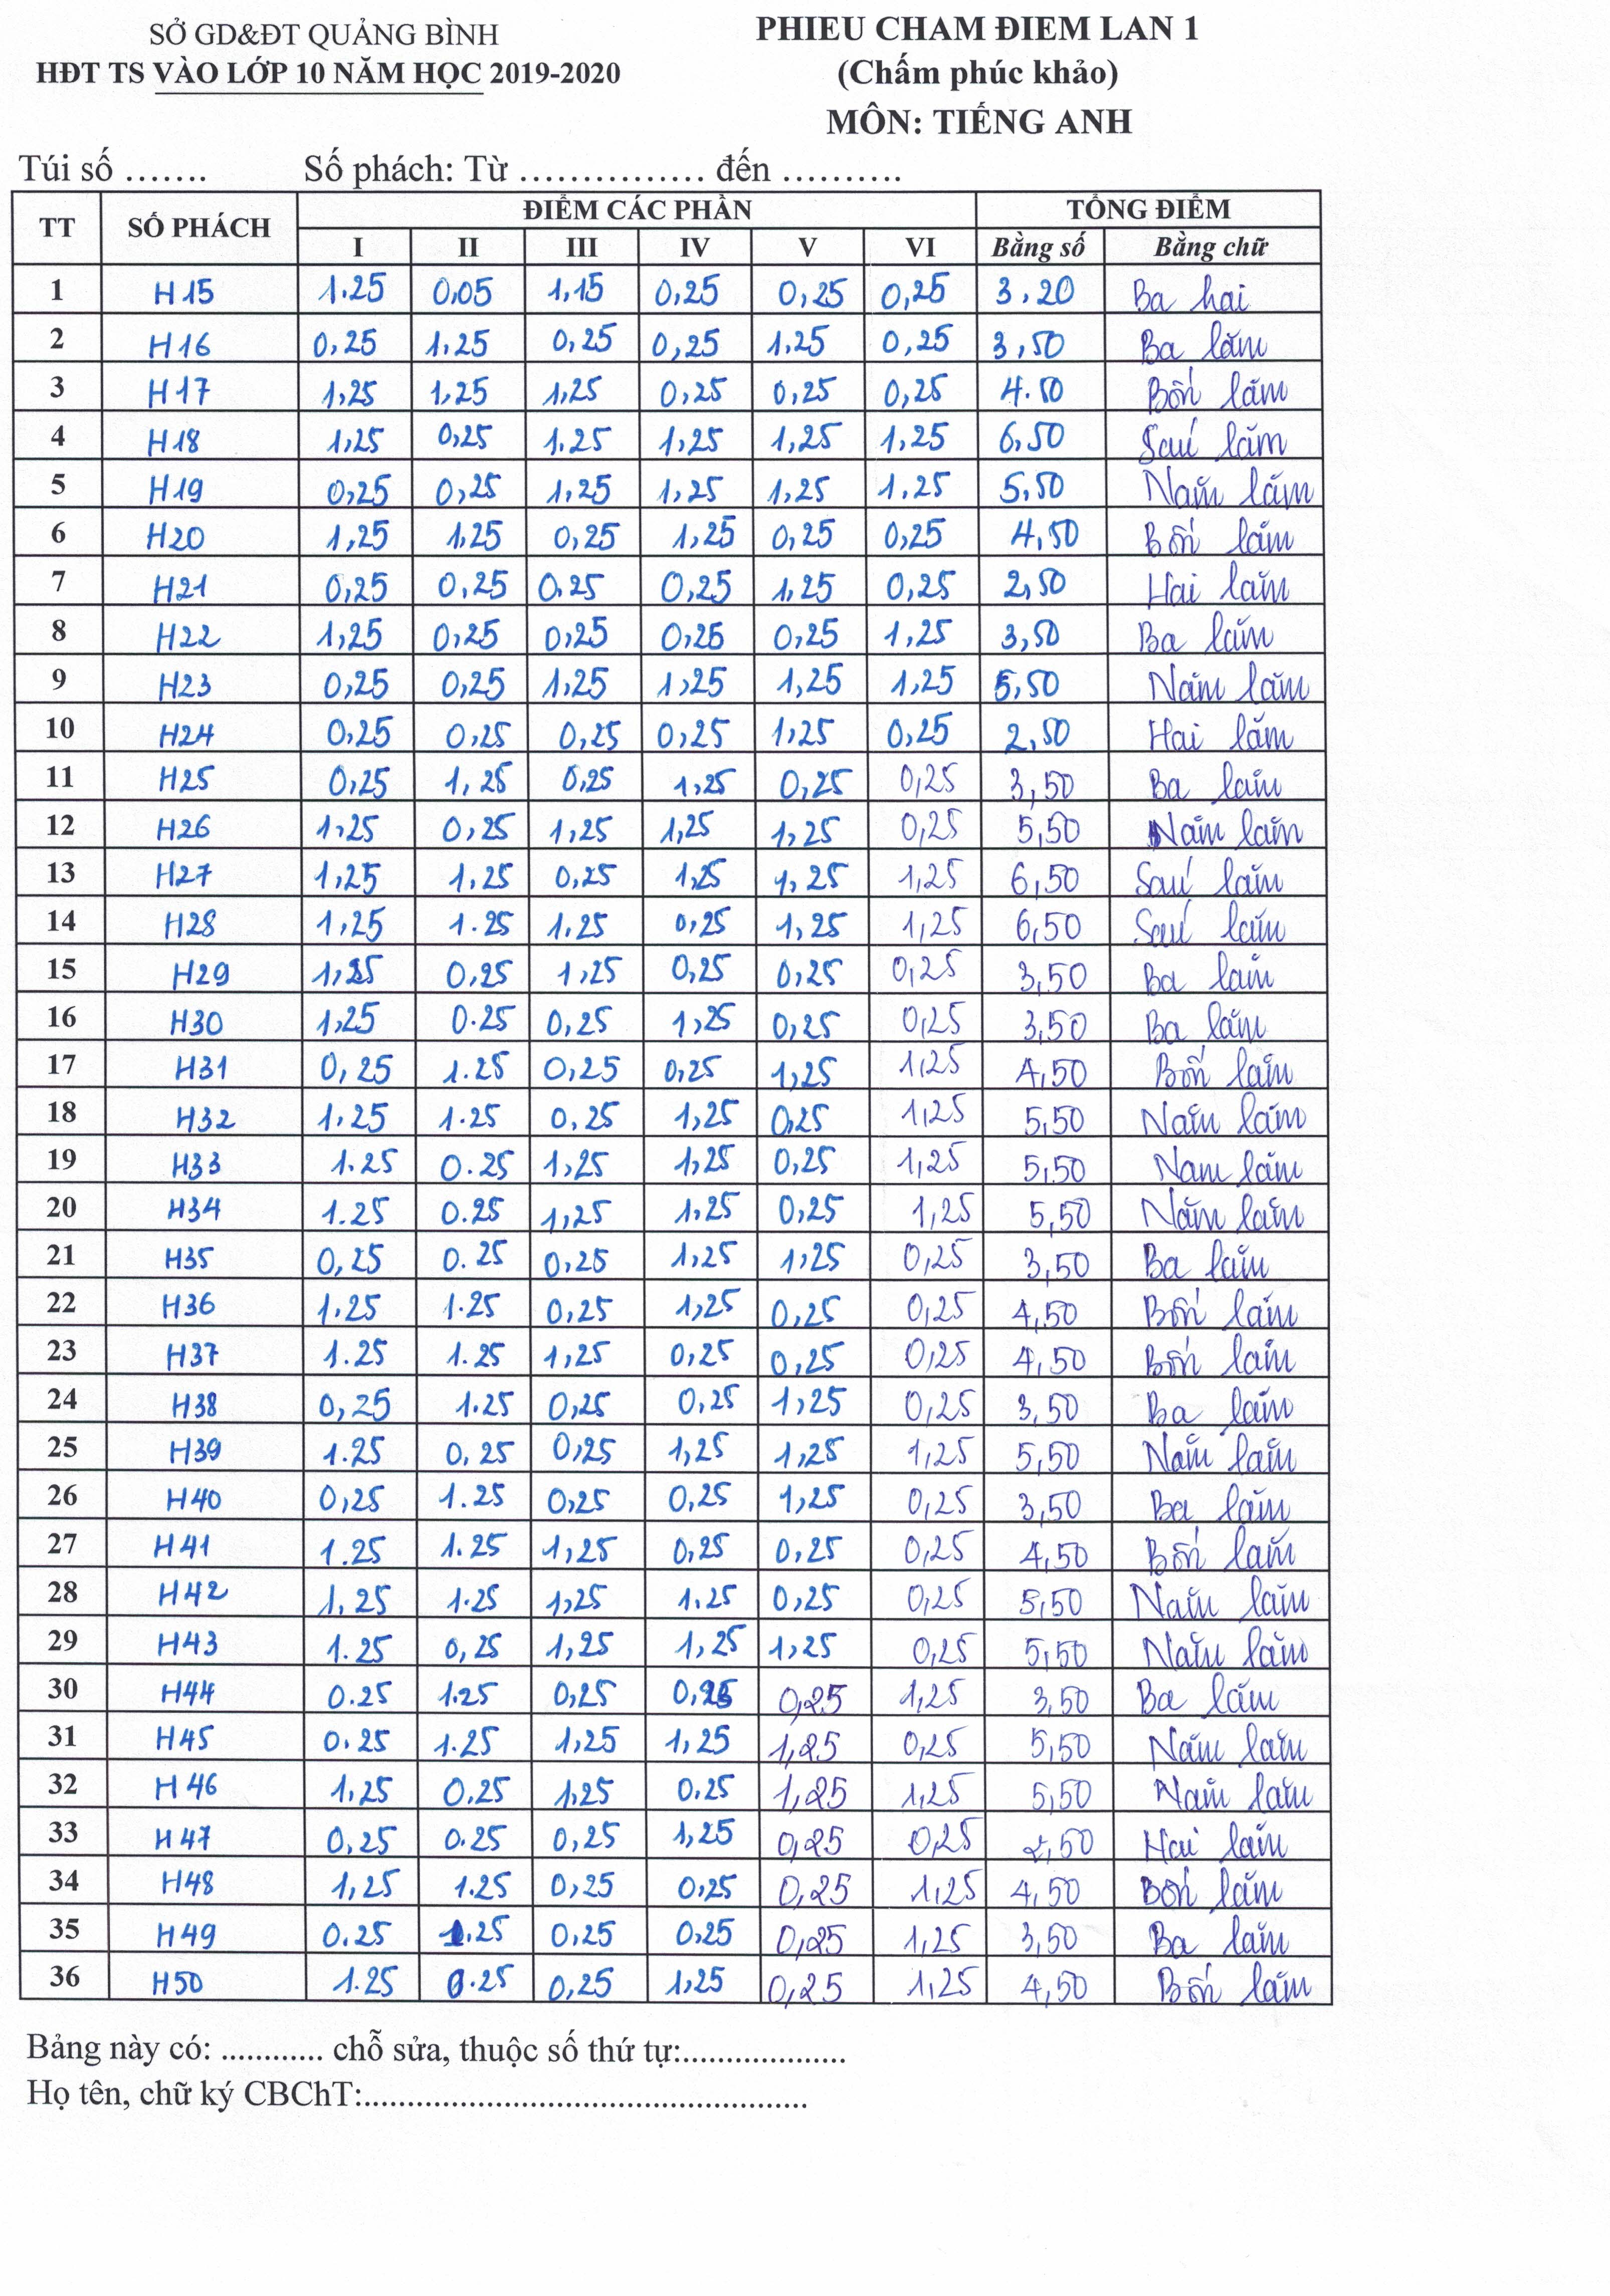 SỞ GD&ĐT QUẢNG BÌNH
HĐT TS VÀO LỚP 10 NĂM HỌC 2019-2020
PHIEU CHAM ĐIEM LAN 1
(Chấm phúc khảo)
MÔN: TIẾNG ANH
Túi số ....... Số phách: Từ ............... đến ..........
TT SỐ PHÁCH ĐIỂM CÁC PHẦN TỔNG ĐIỂM
I II III IV V VI Bằng số Bằng chữ
1 H15 1.25 0,05 1,15 0,25 0,25 0,25 3,20 Ba hai
2 H16 0,25 1,25 0,25 0,25 1,25 0,25 3,50 Ba lăm
3 H17 1,25 1,25 1,25 0,25 0,25 0,25 4.50 Bốn lăm
4 H18 1,25 0,25 1.25 1,25 1,25 1,25 6,50 Sáu lăm
5 H19 0,25 0,25 1,25 1,25 1,25 1.25 5,50 Năm lăm
6 H20 1,25 1,25 0,25 1,25 0,25 0,25 4,50 Bốn lăm
7 H21 0,25 0,25 0.25 0,25 1,25 0,25 2,50 Hai lăm
8 H22 1,25 0,25 0,25 0,25 0,25 1,25 3,50 Ba lăm
9 H23 0,25 0,25 1,25 1,25 1,25 1,25 5,50 Năm lăm
10 H24 0,25 0,25 0,25 0,25 1,25 0,25 2,50 Hai lăm
11 H25 0,25 1,25 0,25 1,25 0,25 0,25 3,50 Ba lăm
12 H26 1,25 0,25 1,25 1,25 1,25 0,25 5,50 Năm lăm
13 H27 1,25 1,25 0,25 1,25 1,25 1,25 6,50 Sáu lăm
14 H28 1,25 1.25 1.25 0,25 1,25 1,25 6,50 Sáu lăm
15 H29 1,25 0,25 1,25 0,25 0,25 0,25 3,50 Ba lăm
16 H30 1,25 0.25 0,25 1,25 0,25 0,25 3,50 Ba lăm
17 H31 0,25 1.25 0,25 0,25 1,25 1,25 4,50 Bốn lăm
18 H32 1.25 1.25 0,25 1,25 0,25 1,25 5,50 Năm lăm
19 H33 1.25 0.25 1,25 1,25 0,25 1,25 5,50 Năm lăm
20 H34 1.25 0.25 1,25 1,25 0,25 1,25 5,50 Năm lăm
21 H35 0,25 0.25 0,25 1,25 1,25 0,25 3,50 Ba lăm
22 H36 1.25 1.25 0,25 1,25 0,25 0,25 4,50 Bốn lăm
23 H37 1.25 1.25 1,25 0,25 0,25 0,25 4,50 Bốn lăm
24 H38 0,25 1.25 0,25 0,25 1,25 0,25 3,50 Ba lăm
25 H39 1.25 0,25 0,25 1,25 1,25 1,25 5,50 Năm lăm
26 H40 0,25 1.25 0,25 0,25 1,25 0,25 3,50 Ba lăm
27 H41 1.25 1.25 1,25 0,25 0,25 0,25 4,50 Bốn lăm
28 H42 1,25 1.25 1,25 1.25 0,25 0,25 5,50 Năm lăm
29 H43 1.25 0,25 1,25 1,25 1,25 0,25 5,50 Năm lăm
30 H44 0.25 1.25 0,25 0,25 0,25 1,25 3,50 Ba lăm
31 H45 0.25 1.25 1,25 1,25 1,25 0,25 5,50 Năm lăm
32 H46 1,25 0,25 1,25 0,25 1,25 1,25 5,50 Năm lăm
33 H47 0,25 0.25 0,25 1,25 0,25 0,25 2,50 Hai lăm
34 H48 1,25 1.25 0,25 0,25 0,25 1,25 4,50 Bốn lăm
35 H49 0.25 1.25 0,25 0,25 0,25 1,25 3,50 Ba lăm
36 H50 1.25 0.25 0,25 1,25 0,25 1,25 4,50 Bốn lăm
Bảng này có: ............ chỗ sửa, thuộc số thứ tự:...................
Họ tên, chữ ký CBChT:...................................................